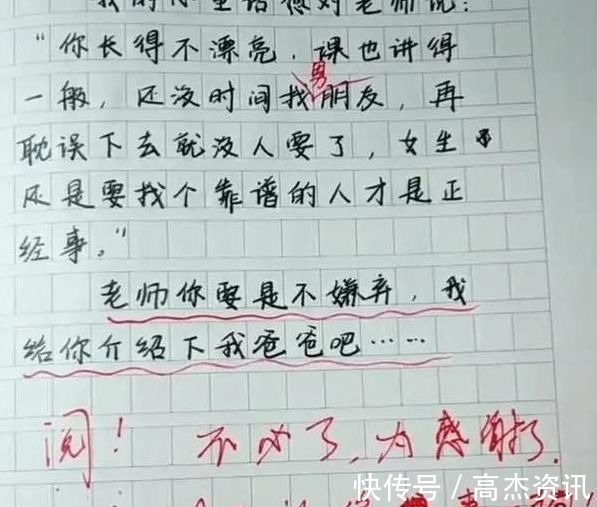 我的心里话想对老师说：
“你长得不漂亮，课也讲得
男
一般，还没时间找朋友，再
耽误下去就没人要了，女生
还是要找个靠谱的人才是正
经事。”
老师你要是不嫌弃，我
给你介绍下我爸爸吧……
阅！不必了，
快传号／高杰资讯